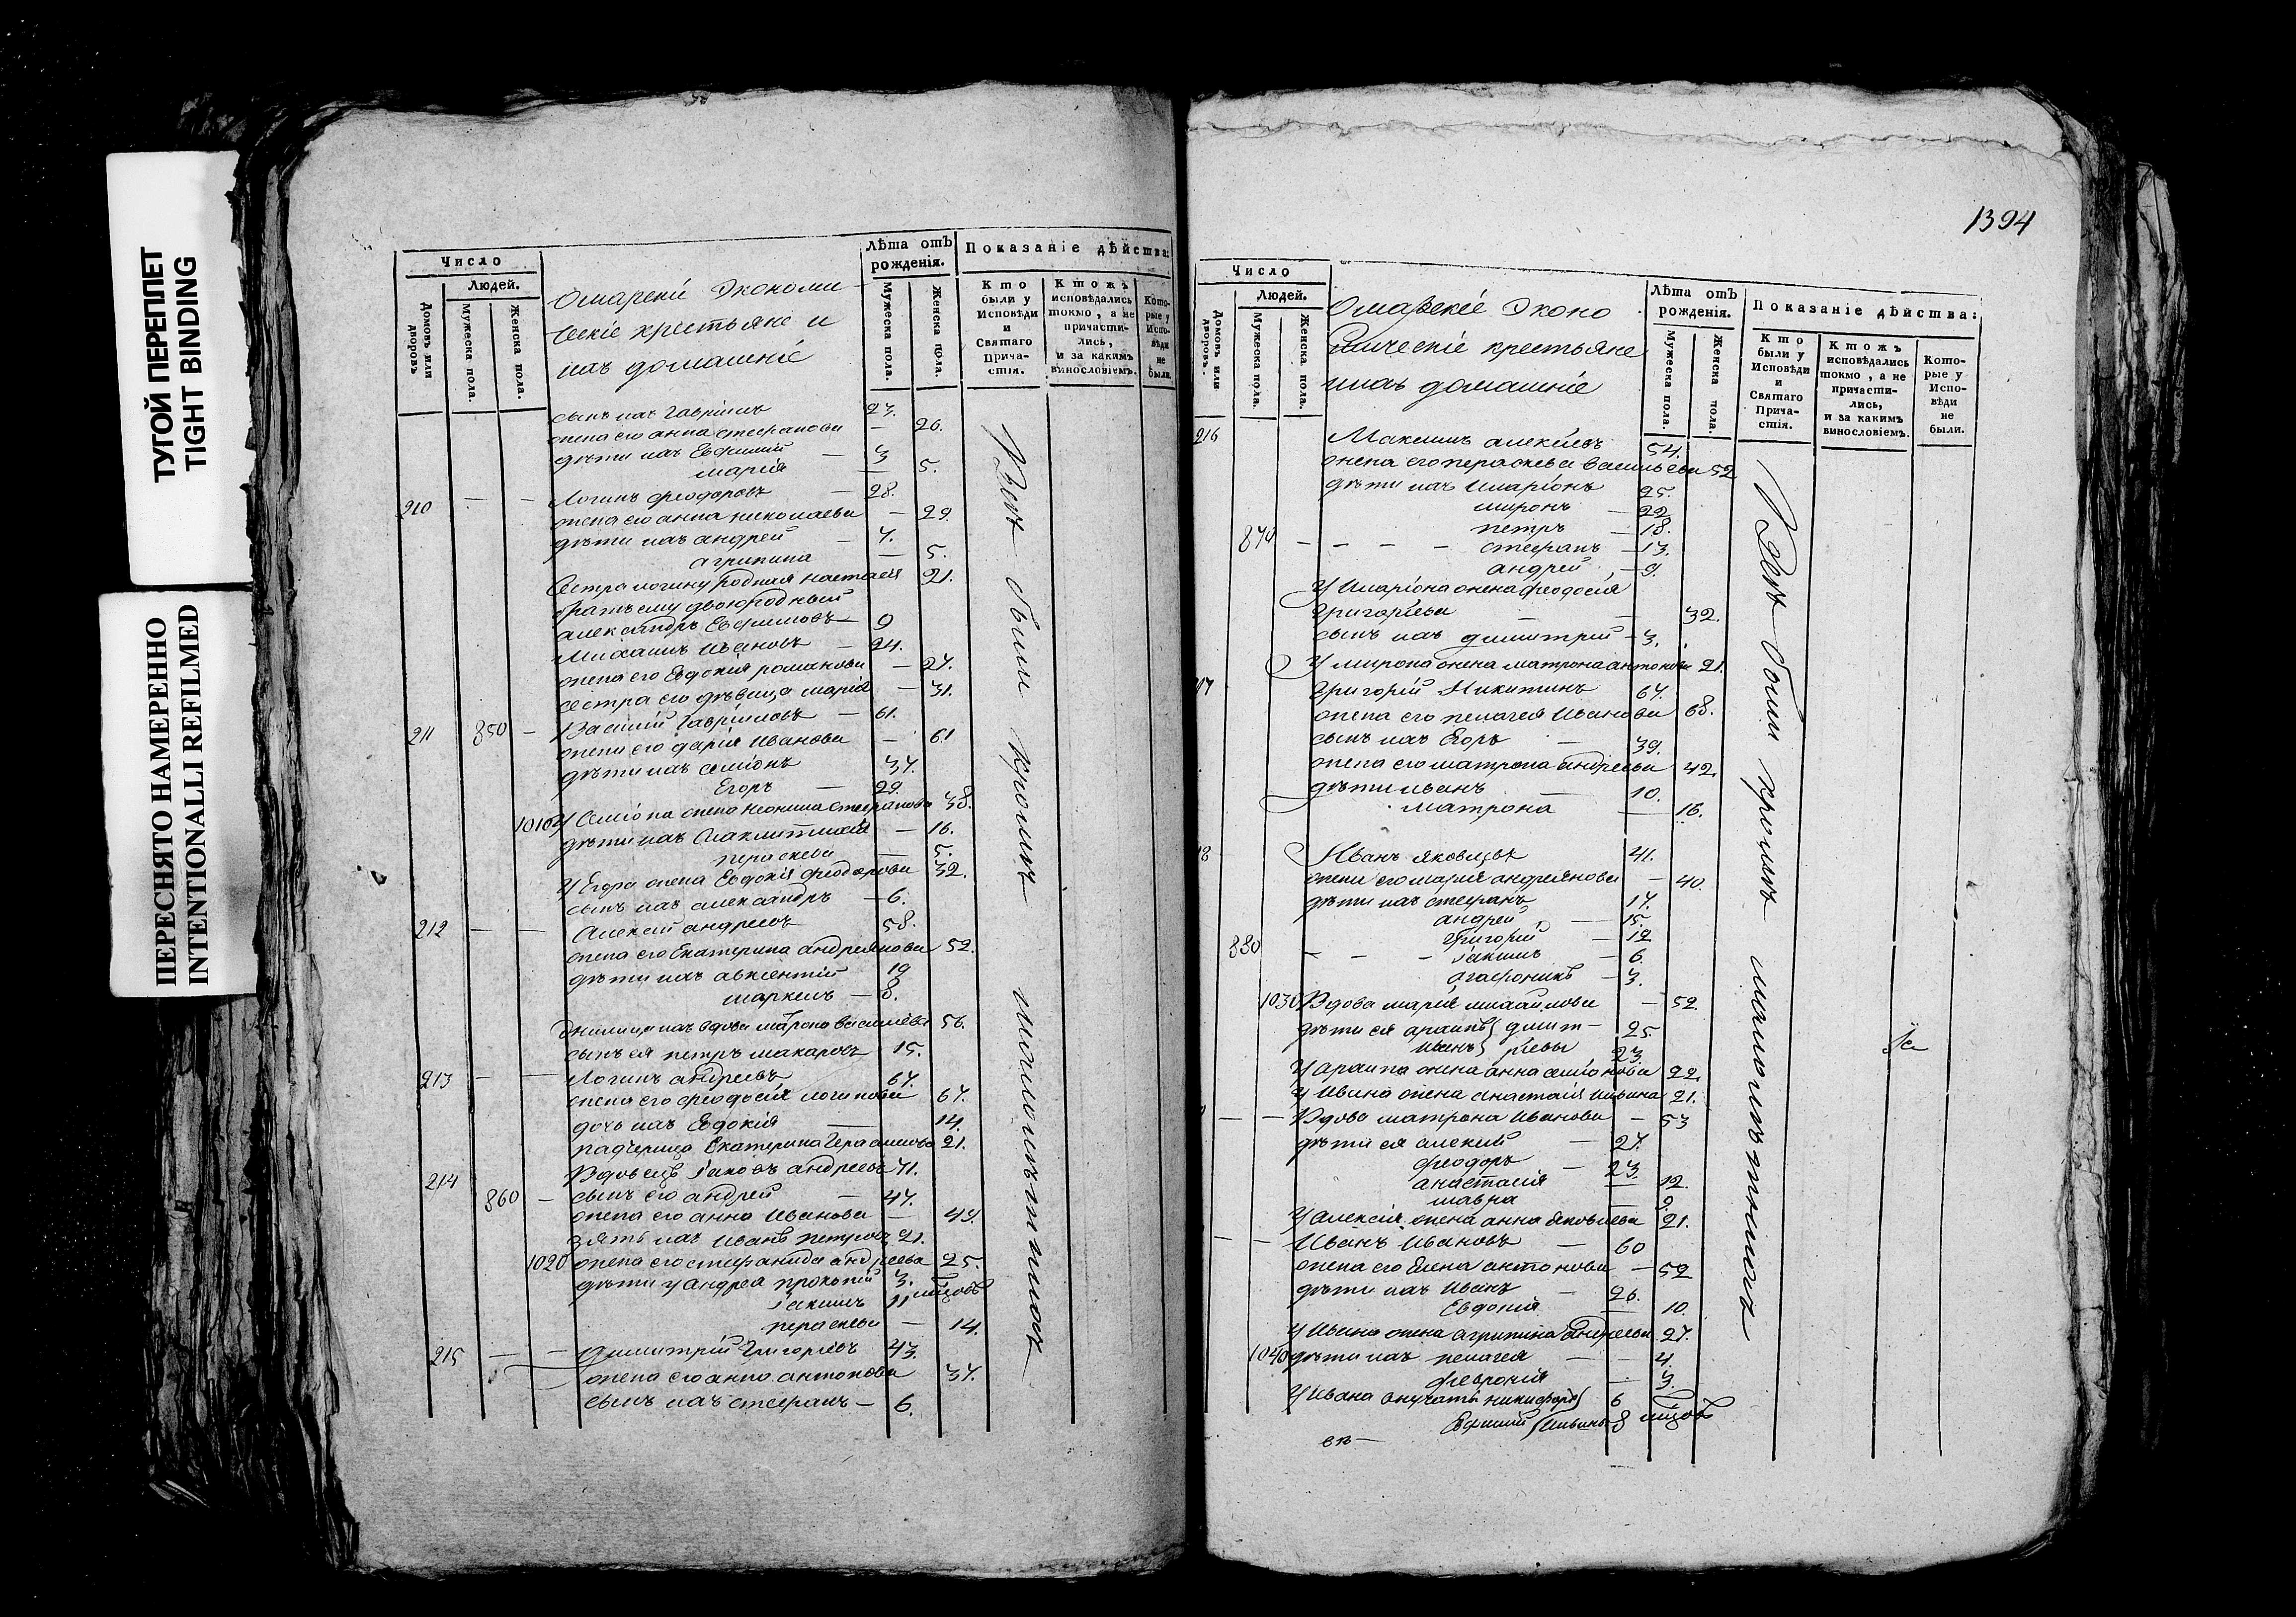 ТУГОЙ ПЕРЕПЛЕТ
TIGHT BINDING
ПЕРЕСНЯТО НАМЕРЕННО
INTENTIONALLI REFILMED
Число
Людей.
Домовъ или дворовъ.
Мужеска пола.
Женска пола.
Экономи
ческіе крестьяне и
ихъ домашніе
Лѣта отъ рожденія.
Мужеска пола.
Женска пола.
Показаніе дѣйства:
Кто были у Исповѣди и Святаго Прича- стія.
Ктожъ исповѣдались токмо, а не причасти- лись, и за какимъ винословіемъ.
Кото- рые у Испо- вѣди не были.
сынъ ихъ Гавріилъ 23.
жена его анна стефанова — 26.
дѣти ихъ Евфимій — 3
марія — 5.
210 — — Логинъ феодоровъ — 28.
жена его анна николаева — 29
дѣти ихъ андрей — 7.
агрипина — 5.
Сестра логину родная настасія 21.
братъ ему двоюродный
александръ Евфимовъ — 9
Михаилъ Ивановъ — 24.
жена его Евдокія романова — 27.
сестра его дѣвица марія — 31.
211 850 — Василій Гавріиловъ — 61.
жена его дарія Иванова — 61
дѣти ихъ семіонъ 37.
Егоръ — 29.
1010 У Семіона жена неонила стефанова 38.
дѣти ихъ — 16.
параскева — 5.
У Егора жена Евдокія феодорова 32.
сынъ ихъ александръ — 6.
212 — — Алексій андреевъ 58.
жена его Екатерина андреянова 52.
дѣти ихъ авксентій 19
маркелъ — 8.
ихъ вдова васильева 56.
сынъ ея петръ макаровъ 15.
213 — — Логинъ андреевъ 67.
жена его феодосія логинова 67.
дочь ихъ Евдокія — 14.
падчерица Екатерина Герасимова 21.
214 Вдовецъ Іаковъ андреевъ 71.
860 — сынъ его андрей — 47.
жена его анна Иванова — 43.
зять ихъ Иванъ петровъ 21.
1020 жена его стефанида андреева 25.
дѣти у андрея прокопій 3.
Іакимъ 11 мцовъ
параскева — 14.
215 — — димитрій Григоріевъ 43.
жена его анна антонова 37.
сынъ ихъ стефанъ — 6.
Всѣ были кромѣ малолѣтныхъ
1394
Число
Людей.
Домовъ или дворовъ.
Мужеска пола.
Женска пола.
Эконо
мическіе крестьяне
ихъ домашніе
Лѣта отъ рожденія.
Мужеска пола.
Женска пола.
Показаніе дѣйства:
Кто были у Исповѣди и Святаго Прича- стія.
Ктожъ исповѣдались токмо, а не причасти- лись, и за какимъ винословіемъ.
Кото- рые у Испо- вѣди не были.
216 Максимъ алексіевъ 54.
жена его параскева васильева 52
дѣти ихъ Иларіонъ 25.
миронъ — 22
петръ — 18.
870 — — — — стефанъ — 13.
андрей — 9.
У Иларіона жена феодосія
Григоріева — — 32.
сынъ ихъ димитрій — 3.
У мирона жена матрона антонова 21.
17 Григорій Никитинъ 67.
жена его пелагея Иванова 68.
сынъ ихъ Егоръ — 39.
жена его матрона андреева 42.
дѣти иванъ 10.
матрона — 16.
18 Иванъ яковлевъ 41.
жена его марія андреянова — 40.
дѣти ихъ стефанъ 17.
андрей — 15.
Григорій — 12
880 — — — Іакимъ — 6.
агафоникъ — 3.
1030 Вдова марія михаилова — 52.
дѣти ея архипъ } димит- 25.
иванъ } ріевы 23.
У архипа жена анна семіонова 22.
У Ивана жена анастасія ильина 21.
— — Вдова матрона Иванова — 53
дѣти ея алексій — 27.
феодоръ — 23.
анастасія — 12.
мавра — 9.
У алексія жена анна яковлева 21.
— — Иванъ Ивановъ — 60
жена его Елена антонова — 52
дѣти ихъ Иванъ — 26.
Евдокія — 10.
У Ивана жена агрипина андреева 27.
1040 дѣти ихъ пелагея — — 4.
февронія — 3.
У Ивана внучатъ никифоръ } 6
Евфимій } Ильины 8 мцовъ
Всѣ были кромѣ малолѣтныхъ